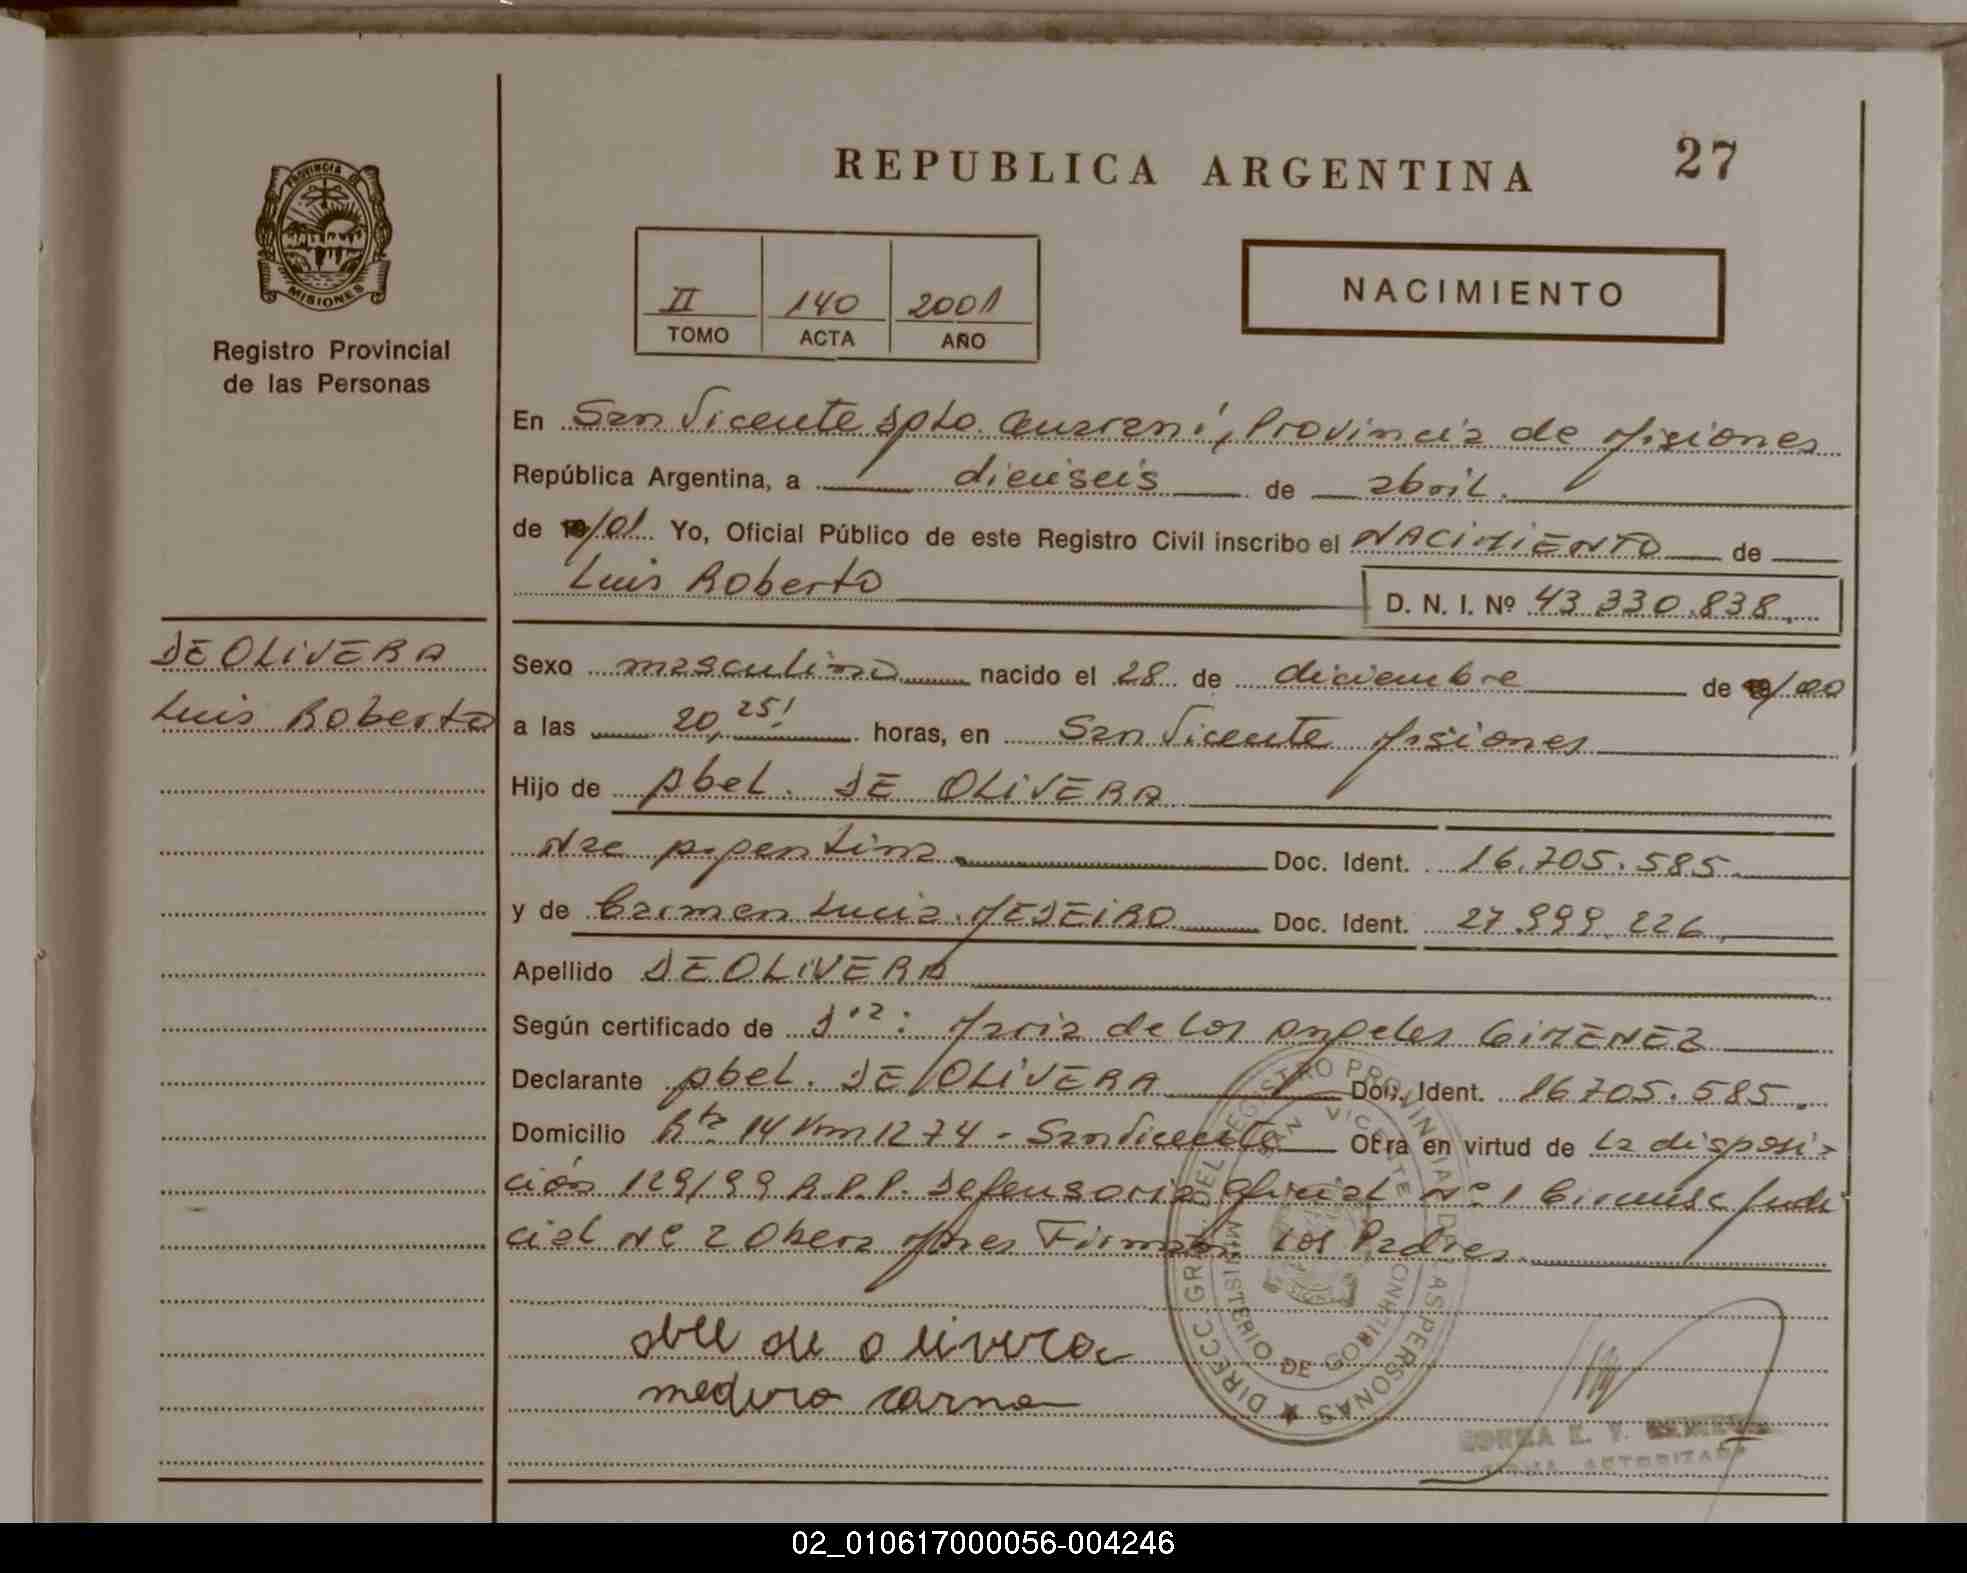 REPUBLICA ARGENTINA
27
PROVINCIA DE
MISIONES
Registro Provincial
de las Personas
II 140 2001
TOMO ACTA AÑO
NACIMIENTO
En San Vicente Dpto. Guaraní, Provincia de Misiones
República Argentina, a dieciseis de abril.
de 19/01 Yo, Oficial Público de este Registro Civil inscribo el NACIMIENTO de
Luis Roberto D. N. I. Nº 43.330.838
DE OLIVERA
Luis Roberto
Sexo masculino nacido el 28 de diciembre de 19/00
a las 20,25' horas, en San Vicente Misiones
Hijo de Abel. DE OLIVERA
Nac Argentina Doc. Ident. 16.705.585
y de Carmen Lucia. MEDEIRO Doc. Ident. 27.999.226
Apellido DE OLIVERA
Según certificado de Dra: Maria de los Angeles GIMENEZ
Declarante Abel. DE OLIVERA Doc. Ident. 16705.585
Domicilio Rta 14 Km 1274 - San Vicente Obra en virtud de La disposi-
ción 129/99 R.P.P. Defensoria Oficial Nº 1 Circunsc Judi
cial Nº 2 Obera Mnes Firman Los Padres
abel de olivera
mediro carmen
DIRECC. GRAL. DEL REGISTRO PROVINCIAL DE LAS PERSONAS
SAN VICENTE
MINISTERIO DE GOBIERNO
E. V.
FIRMA AUTORIZADA
02_010617000056-004246